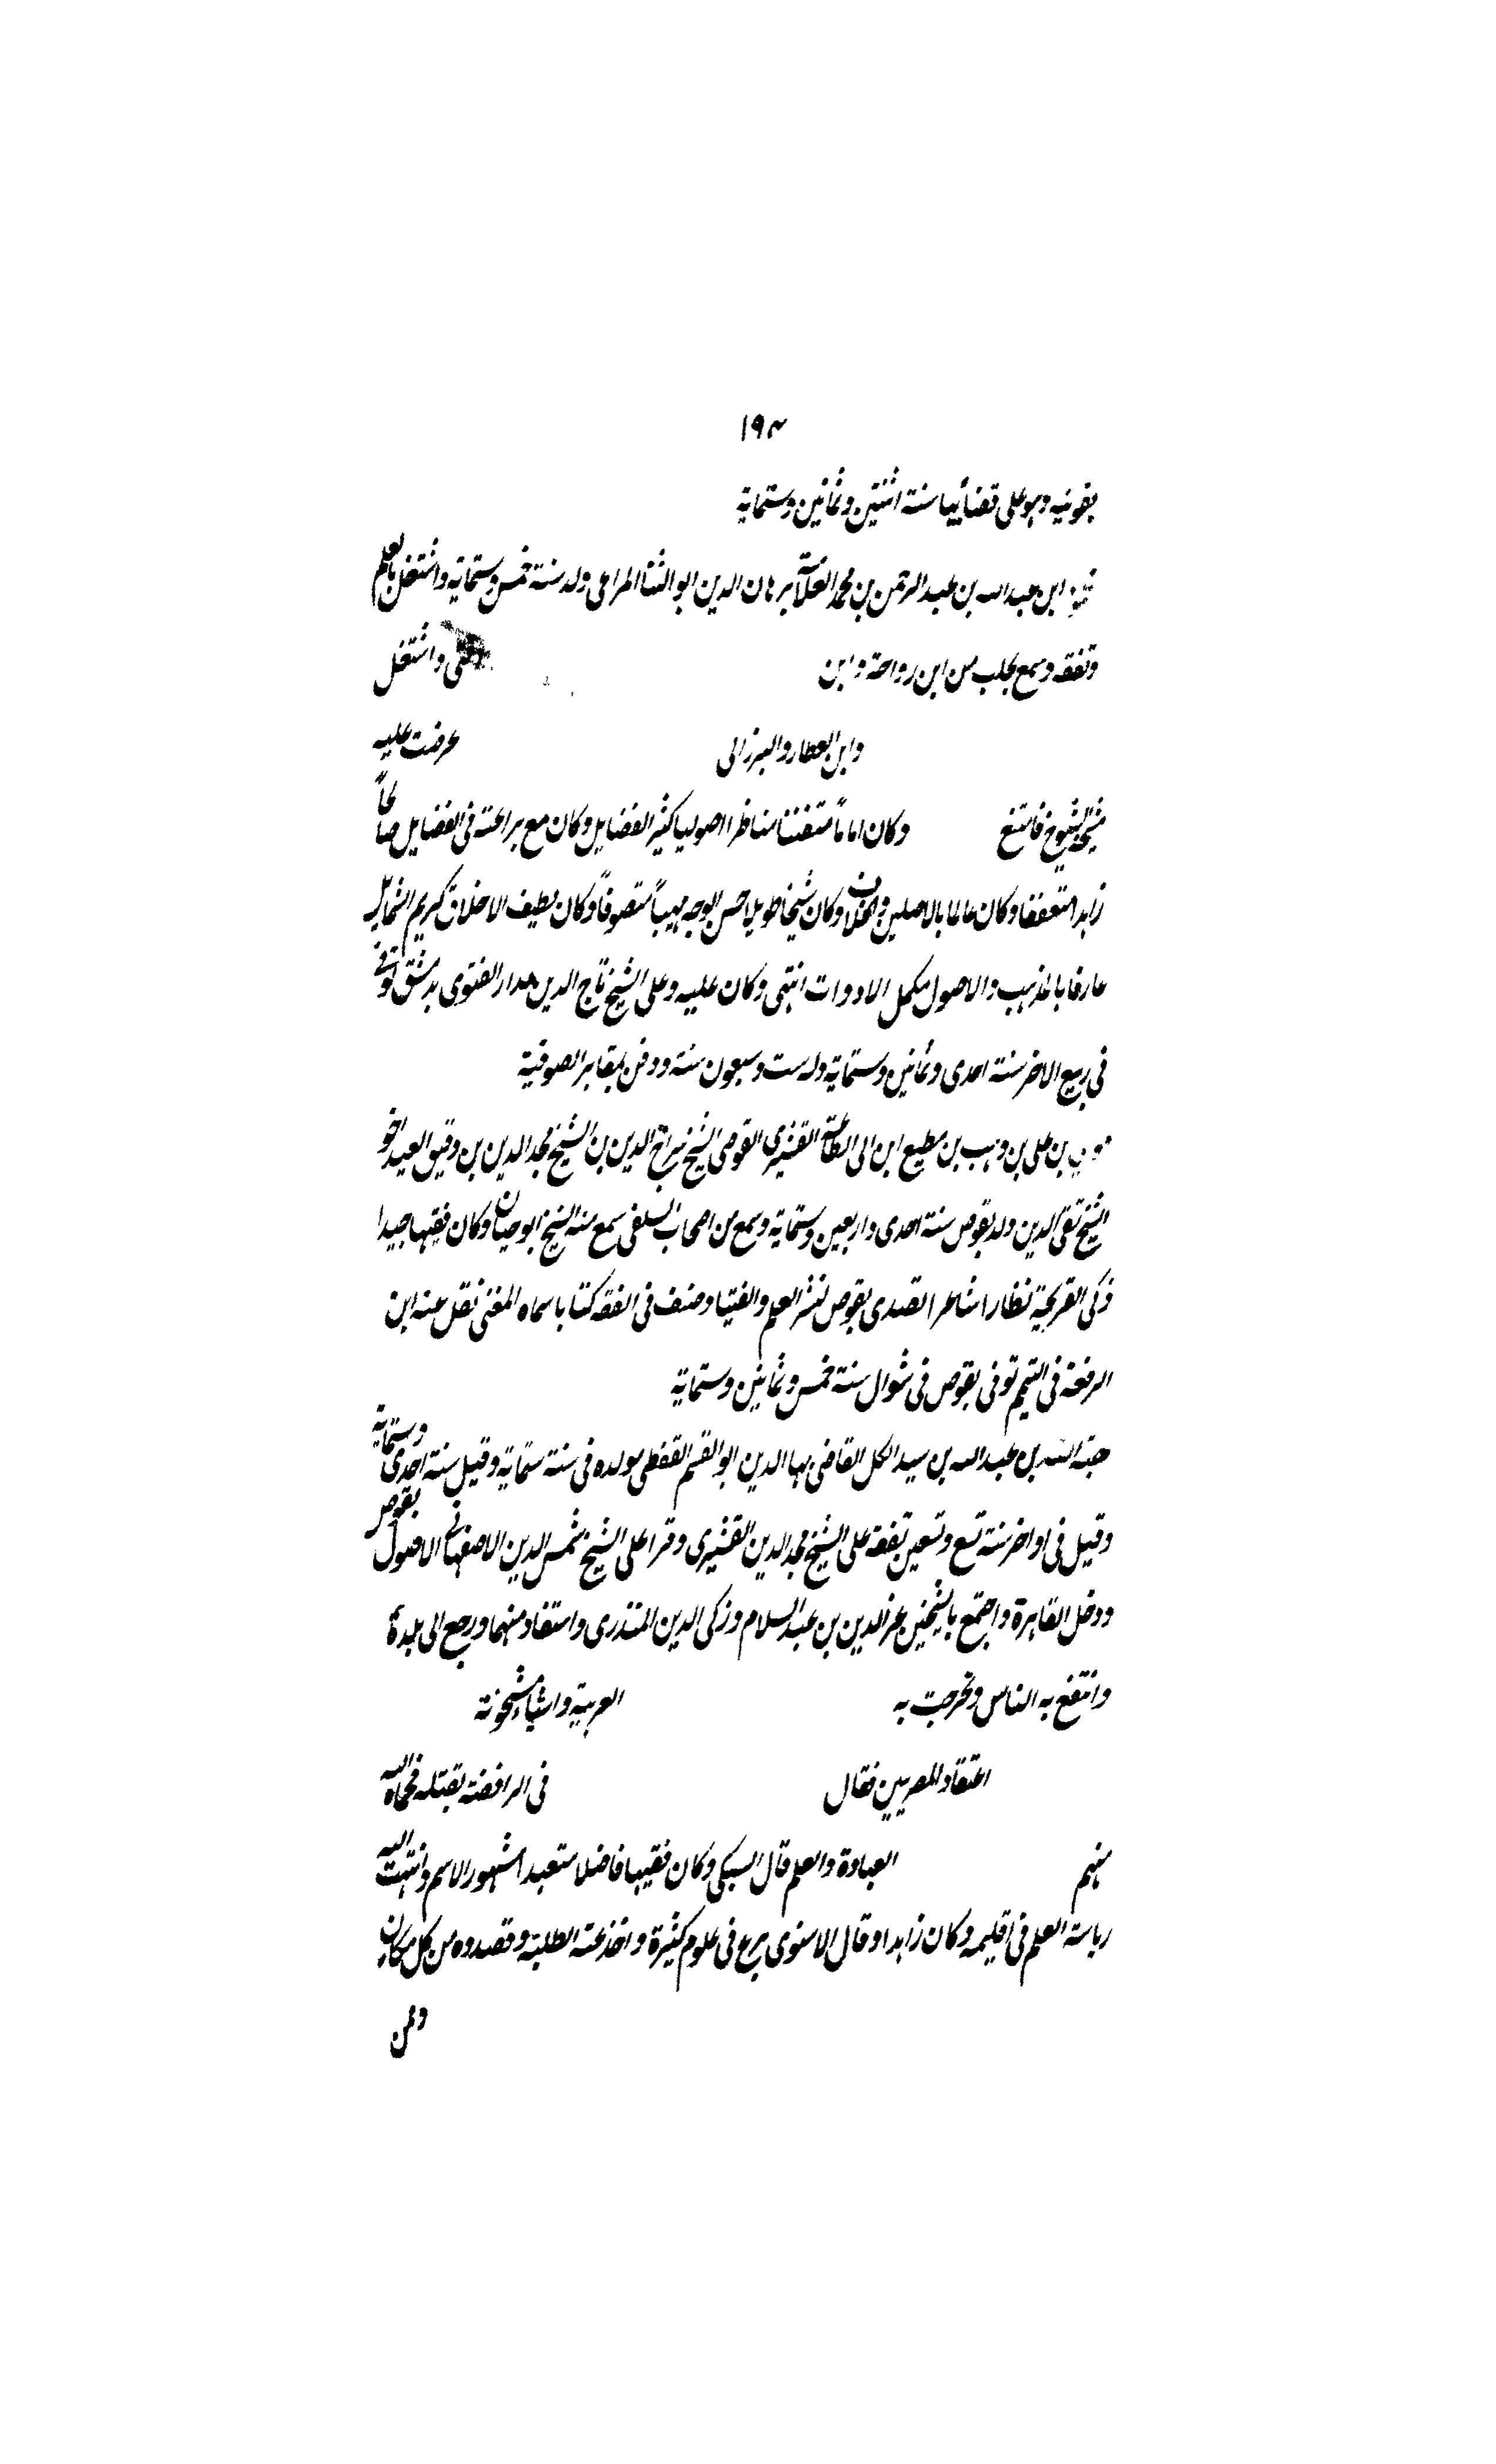 ١٩٣
بقونيه وهو على قضائها سنة اثنتين وثمانين وستماية
ابن عبد الله بن عبد الرحمن بن محمد العلامة برهان الدين ابو الثنا المراعى ولد سنة خمس وستماية واشتغل بالعلم
وتفقه وسمع بحلب من ابن رواحة وابن واشتغل
وابن العطار والبرزالى عرضت عليه
مشيخة الشيوخ فامتنع وكان اماماً متفننا مناظرا اصوليا كثير الفضايل وكان مع براعته فى الفضايل صالحاً
زاهدا متعففا وكان عالما بالاصلين والخلاف وكان شيخا طويلا حسن الوجه مهيباً متصوفاً وكان لطيف الاخلاق كريم الشمايل
عارفا بالمذهب والاصول مكمل الادوات انتهى وكان عليه وعلى الشيخ تاج الدين مدار الفتوى بدمشق توفى
فى ربيع الاخر سنة احدى وثمانين وستماية وله ست وسبعون سنة ودفن بمقابر الصوفية
بن على بن وهب بن مطيع ابن ابى الطاعة القشيرى القوصى الشيخ سراج الدين بن الشيخ مجد الدين بن دقيق العيد اخو
الشيخ تقى الدين ولد بقوص سنة احدى واربعين وستماية وسمع من اصحاب السلفى سمع منه الشيخ ابو حيان وكان فقيها جيدا
ذكى القريحة نظارا شاعرا تصدى بقوص لنشر العلم والفتيا وصنف فى الفقه كتابا سماه المغنى نقل عنه ابن
الرفعة فى التيمم توفى بقوص فى شوال سنة خمس وثمانين وستماية
هبة الله بن عبد الله بن سيد الكل القاضى بها الدين ابو القسم القفطى مولده فى سنة ستماية وقيل سنة احدى وستماية
وقيل فى اواخر سنة تسع وتسعين تفقه على الشيخ مجد الدين القشيرى وقرا على الشيخ شمس الدين الاصفهانى الاصول بقوص
ودخل القاهرة واجتمع بالشيخين عز الدين بن عبد السلام وزكى الدين المنذرى واستفاد منهما ورجع الى بلده
وانتفع به الناس وتخرجت به العربية واشياء مشحونة
اعتقاد المصريين فقال فى الرافضة بقتله فحماه الله
منهم العبادة والعلم قال السبكى وكان فقيها فاضلا متعبدا مشهور الاسم وانتهت اليه
رياسة العلم فى اقليمه وكان زاهدا وقال الاسنوى برع فى علوم كثيرة واخذ عنه الطلبة وقصدوه من كل مكان
وممن